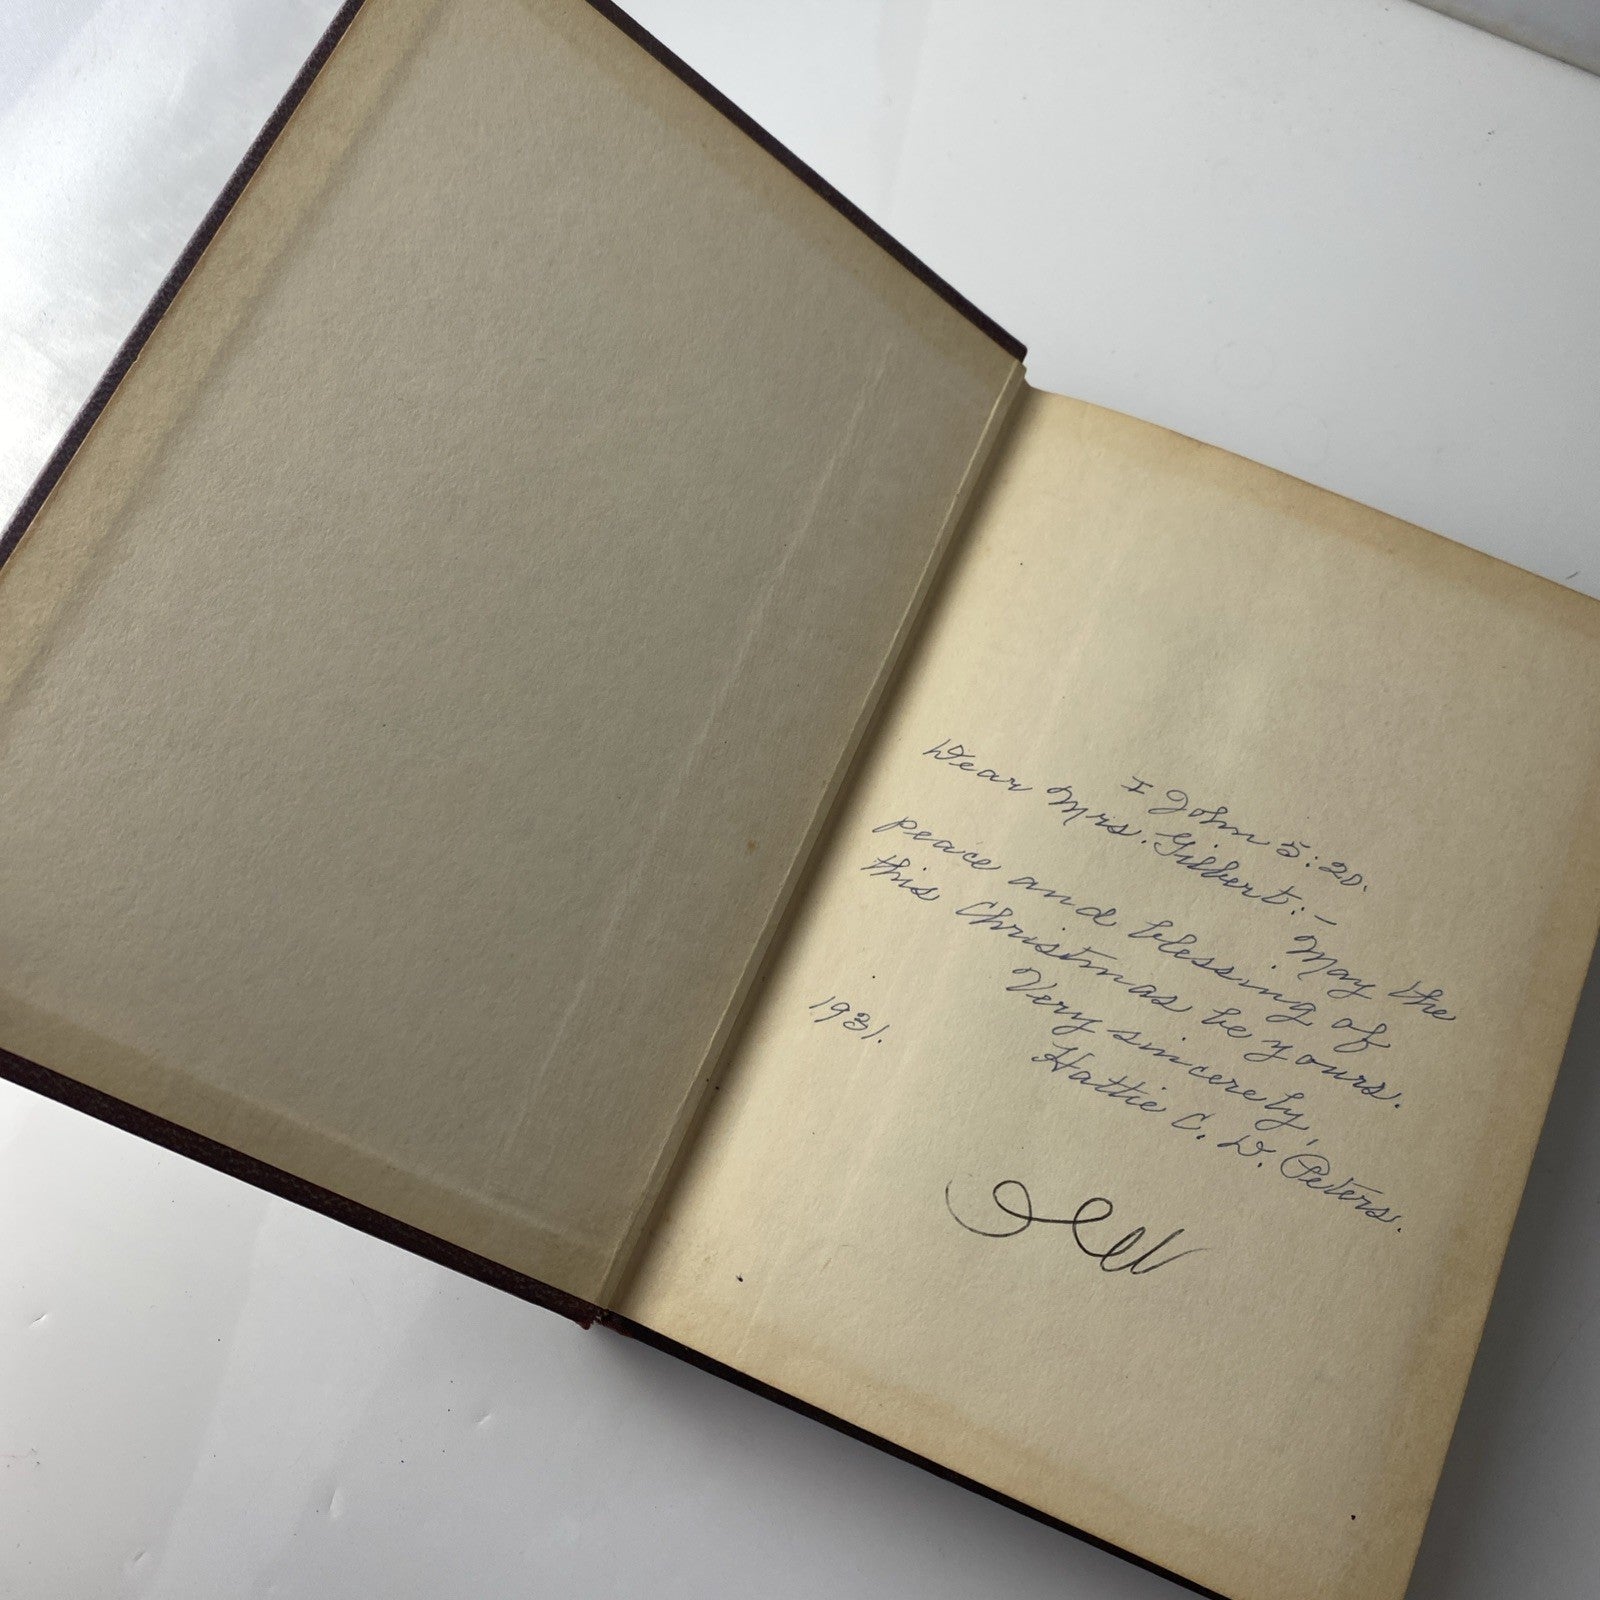 I John 5:20.
Dear Mrs. Gilbert:— May the
peace and blessing of
this Christmas be yours.
Very sincerely,
Hattie C. D. Peters.
1931.